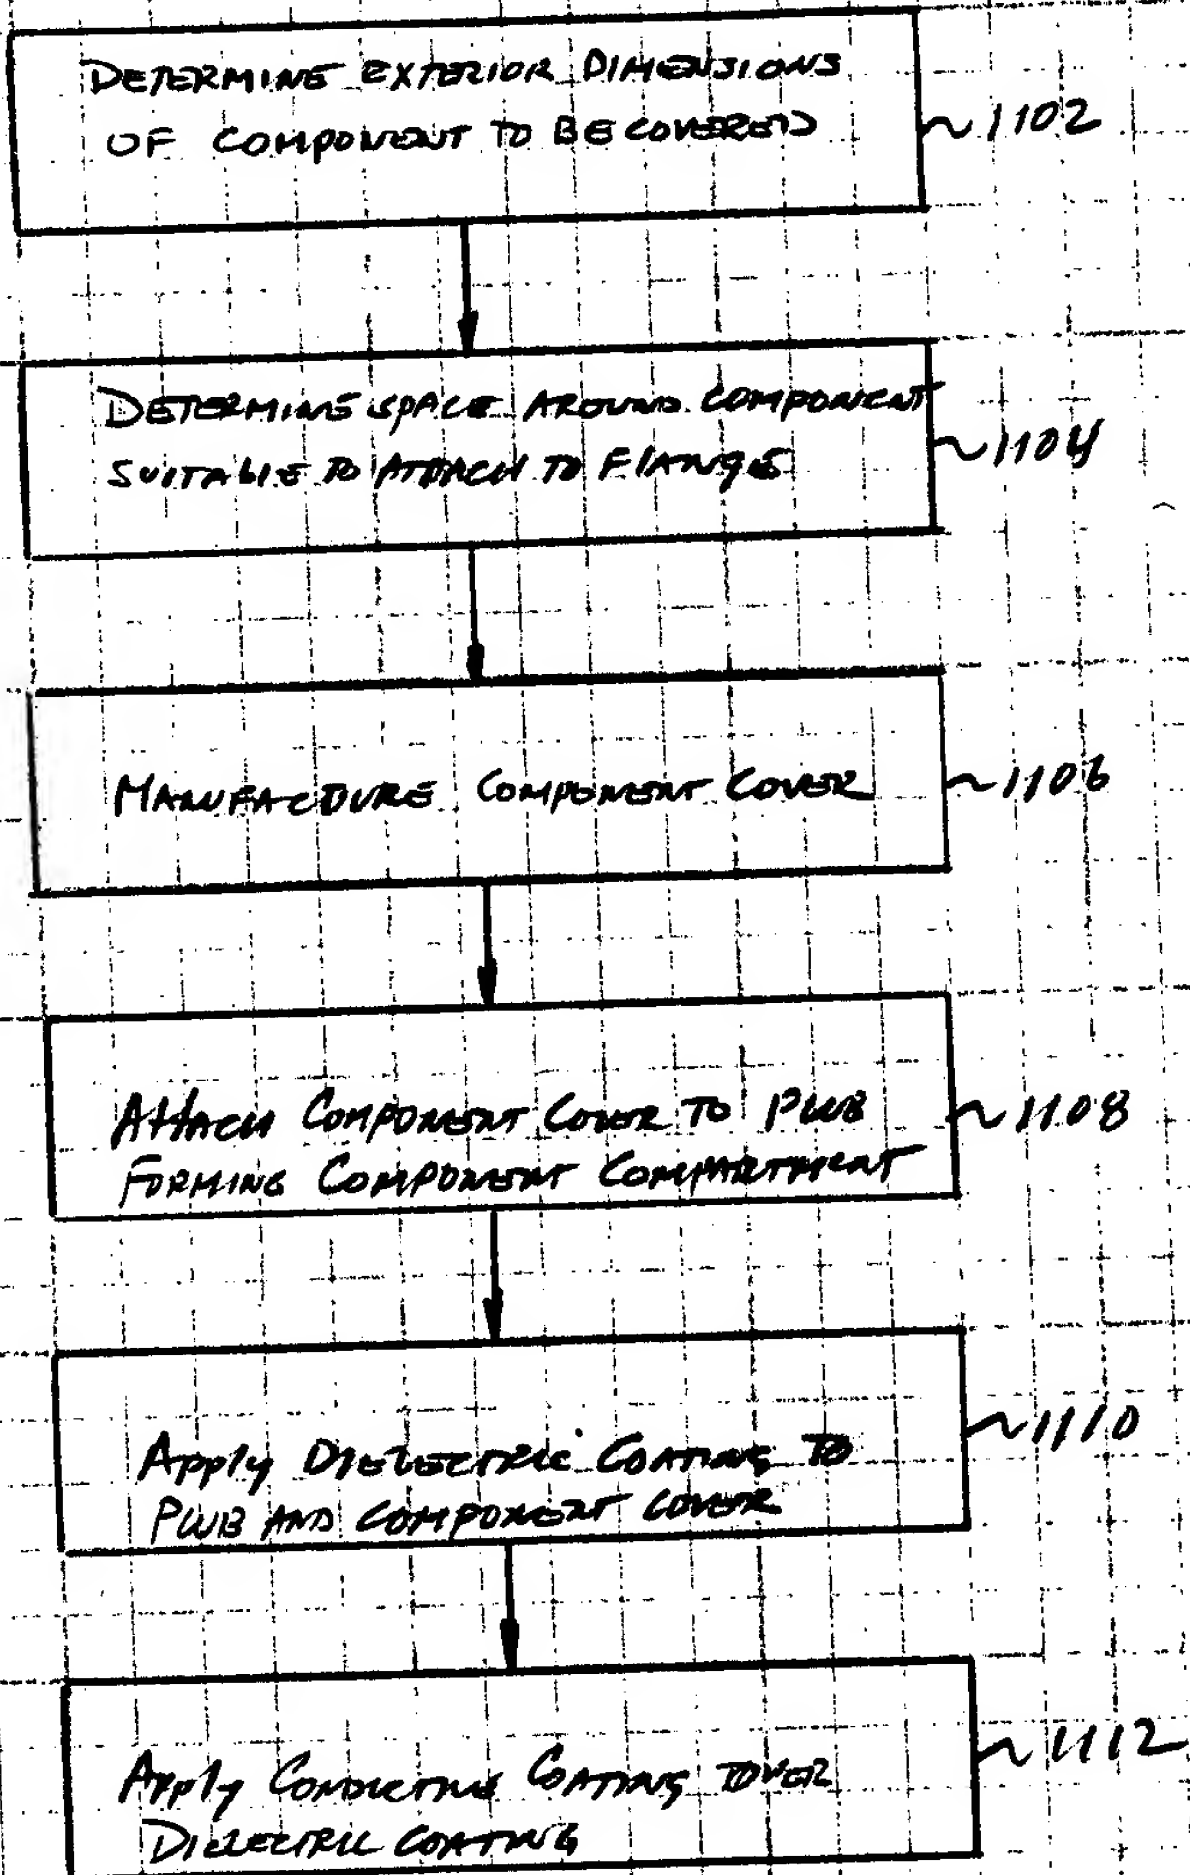 DETERMINE EXTERIOR DIMENSIONS
OF COMPONENT TO BE COVERED
~1102
DETERMINE SPACE AROUND COMPONENT
SUITABLE TO ATTACH TO FLANGE
~1104
MANUFACTURE COMPONENT COVER
~1106
ATTACH COMPONENT COVER TO PWB
FORMING COMPONENT COMPARTMENT
~1108
Apply DIELECTRIC COATING TO
PWB AND COMPONENT COVER
~1110
Apply CONDUCTING COATING
DIELECTRIC COATING
~1112